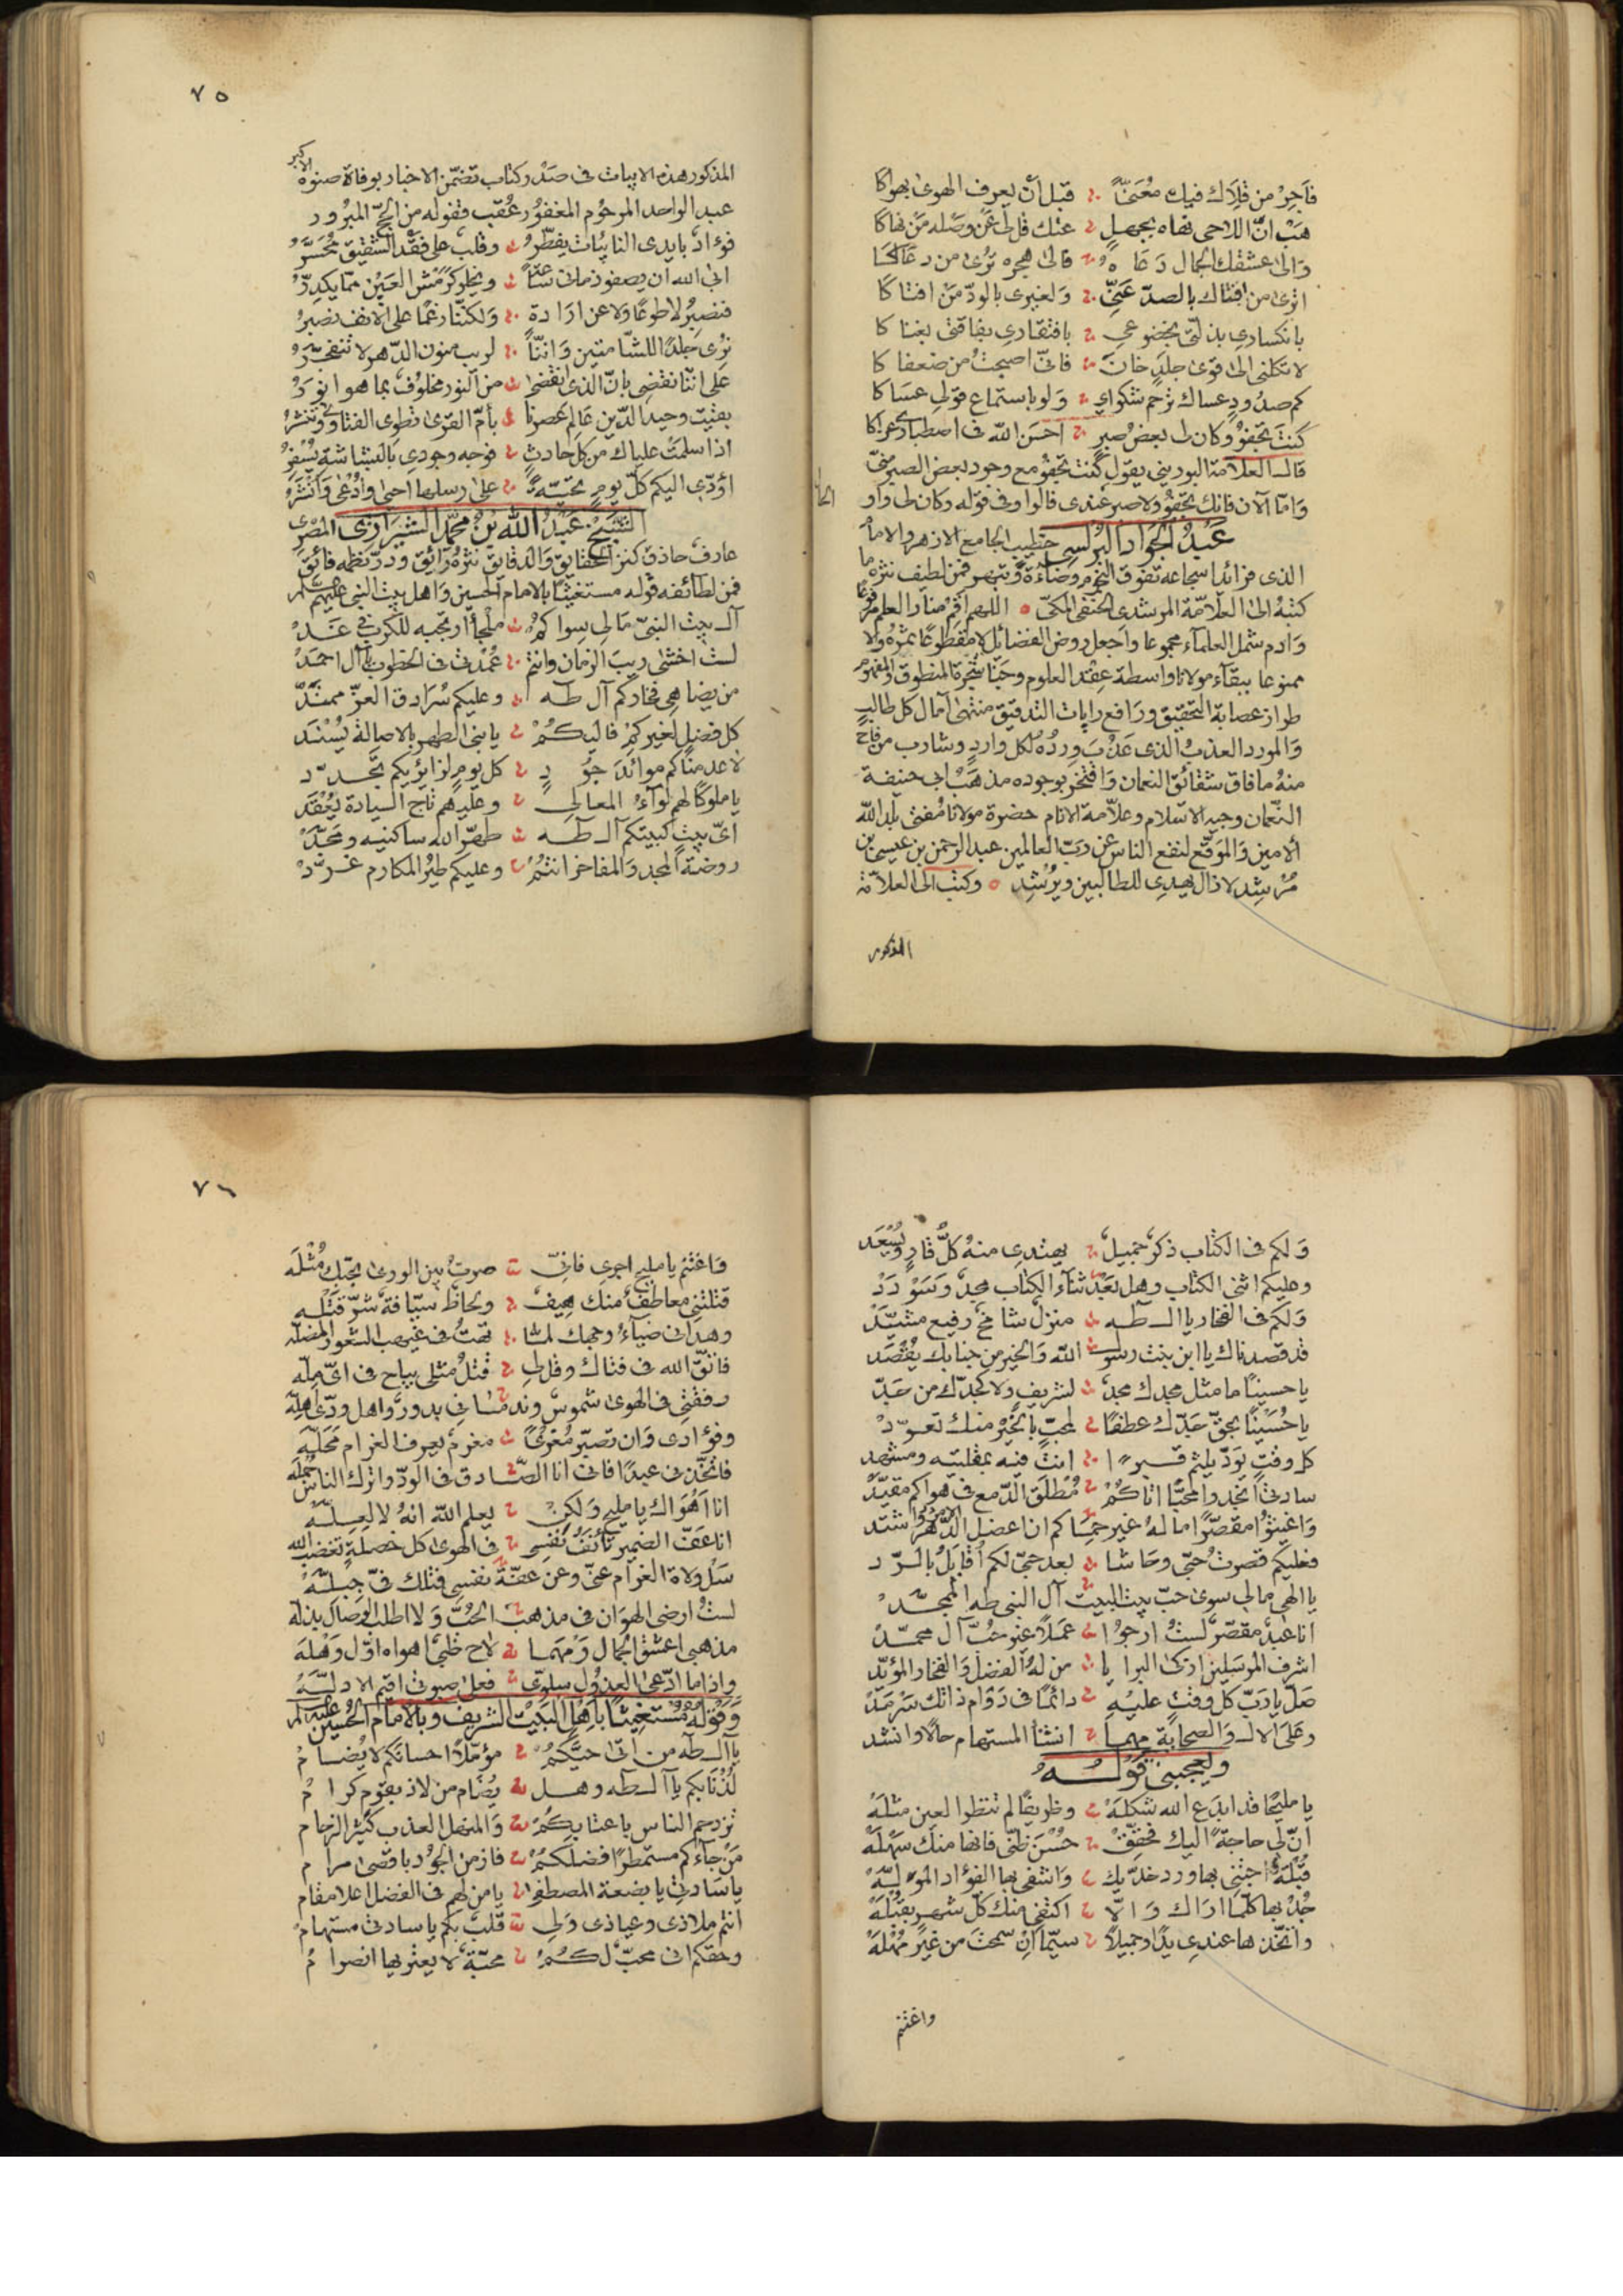 فأجر من قلاك فيك معنّى قبل أن يعرف الهوى يهواكا
هب انّ اللاحي نهاه بجهل عنك قل لي عن وصله من نهاكا
والى عشقك الجمال دعاه فالى هجره ترى من دعاكا
اترى من افتاك بالصدّ عنّي ولغيري بالودّ من افتاكا
بانكساري بذلّتي بخضوعي بافتقاري بفاقتي بغناكا
لا تكلني الى قوى جلد خان فانّي اصبحت من ضعفاكا
كم صدود عساك ترحم شكواي ولو باستماع قولي عساكا
كنت تجفو وكان لي بعض صبر احسن الله في اصطباري عزاكا
قال العلامة البوريني يقول كنت تجفو مع وجود بعض الصبر منّي
وامّا الآن فانك تجفو ولا صبر عندي قالوا وفي قوله وكان لي واو
عبد الجواد البرلسي خطيب الجامع الازهر والامام
الذي فرائد اسجاعه تفوق النجوم وضاءة وتبهر فمن لطيف نثره ما
كتبه الى العلامّة المرشدي الحنفي المكيّ اللهم اقم منار العلم مرفوعا
وادم شمل العلماء مجموعا واجعل روض الفضائل لا مقطوعا ثمره ولا
ممنوعا ببقاء مولانا واسطة عقد العلوم وجنا شجرة المنطوق والمفهوم
طراز عصابة التحقيق ورافع رايات التدقيق منتهى آمال كل طالب
والمورد العذب الذي عذب ورده لكل وارد وشارب من فاح
منه ما فاق شقائق النعمان وافتخر بوجوده مذهب ابي حنيفة
النعمان وجيه الاسلام وعلاّمة الانام حضرة مولانا مفتي بلد الله
الامين والموقع لنفع الناس عن ربّ العالمين عبد الرحمن بن عيسى بن
مرشد لا زال يهدي للطالبين ويرشد وكتب الى العلاّمة
المذكور
٧٥
المذكور هذه الابيات في صدر كتاب تضمّن الاخبار بوفاة صنوه الاكبر
عبد الواحد المرحوم المغفور عقب قفوله من الحجّ المبرور
فؤاد بايدي النائبات يفطّر وقلب على فقد الشقيق محسّر
ابى الله ان يصفو زماني ويخلو كرمش العين ممّا يكدّر
فنصبر لا طوعا ولا عن ارادة ولكنّا رغما على الانف نصبر
نرى جلدا للشامتين واننّا لريب منون الدّهر لا نتضجّر
على انّنا نقضي بانّ الذي انقضى من النور مخلوف بما هو انور
بقيت وحيد الدّين عالم عصرنا بأمّ القرى تطوي الفتاوى وتنشر
اذا سلمت علياك من كل حادث فوجه وجودي بالبشاشة يسفر
اؤدّي اليكم كلّ يوم تحيّة على رسلها احيى وادعى وانشر
الشيخ عبد الله بن محمّد الشبراوي المصري
عارف حاذق كنز الحقايق والدقائق نثره رائق ودرّ نظمه فائق
فمن لطائفه قوله مستغيثا بالامام الحسين واهل بيت النبي عليهم
آل بيت النبيّ مالي سواكم ملجأ ارتجيه للكرب في غد
لست اخشى ريب الزمان وانتم عمدتي في الخطوب يا آل احمد
من يضاهي فخاركم آل طه وعليكم سرادق العزّ ممتدّ
كل فضل لغيركم فاليكم يا بني الطهر بالاصالة يسند
لا عدمنا كم موائد جود كل يوم لزائريكم تجدّد
يا ملوكا لهم لواء المعالي وعليهم تاج السيادة يعقد
ايّ بيت كبيتكم آل طه طهّر الله ساكنيه ومجّد
روضة المجد والمفاخر انتم وعليكم طير المكارم غرّد
ولكم في الكتاب ذكر جميل يهتدي منه كلّ قار ويسعد
وعليكم اثنى الكتاب وهل بعد ثناء الكتاب مجد وسودد
ولكم في الفخار يا آل طه منزل شامخ رفيع مشيّد
قد قصدناك يا ابن بنت رسول الله والخير من جنابك يقصد
يا حسينا ما مثل مجدك مجد لشريف ولا كجدّك من جدّ
يا حسينا بحقّ جدّك عطفا لمحبّ بالخير منك تعوّد
كل وقت يودّ يلثم قبرا انت فيه بمقلتيه ومشهد
سادتي انجدوا محبّا اتاكم مطلق الدّمع في هواكم مقيّد
واغيثوا مقصّرا ما له غير حماكم ان اعضل الامر واشتد
فعليكم قصرت حبّي وحاشا بعد حبّي لكم اقابل بالردّ
يا الهي مالي سوى حبّ بيت البيت آل النبي طه الممجّد
انا عبد مقصّر لست ارجو عملا غير حبّ آل محمّد
اشرف المرسلين ازكى البرايا من له الفضل والفخار المؤبّد
صلّ يا ربّ كل وقت عليه دائما في دوام ذاتك سرمد
وعلى الال والصحابة مهما انشأ المستهام حالا وانشد
ويعجبني قوله
يا مليحا قد ابدع الله شكله وظريفا لم تنظر العين مثله
انّ لي حاجة اليك فحقّق حسن ظنّي فانها منك سهله
قبلة اجتني بها ورد خدّيك واشفي بها الفؤاد الموله
جد بها كلّما اراك والاّ اكتفي منك كلّ شهر بقبله
واتخذها عندي يدا وجميلا سيّما ان سمحت من غير مهله
واغتنم
٧٦
واغتنم يا مليح اجري فانّي صرت بين الورى بحبّك مثله
قتلتني معاطف منك هيف ولحاظ سيّافة شرّ قتله
وهداني ضياء وجهك لمّا تهت في غيهب الشعور المضلّه
فاتّق الله في فتاك وقل لي قتل مثلي يباح في ايّ ملّه
رفقتي في الهوى شموس وندماني بدور واهل ودّي اهلّه
وفؤادي وان تصبّر مغرى مغرم يعرف الغرام محلّه
فاتخذني عبدا فاني انا الصادق في الودّ واترك الناس جمله
انا اهواك يا مليح ولكن يعلم الله انه لا لعلّه
انا عفّ الضمير تأنف نفسي في الهوى كل خصلة تغضب الله
سل ولاة الغرام عنّي وعن عفّة نفسي فتلك فيّ جبلّه
لست ارضى الهوان في مذهب الحبّ ولا اطلب الوصال بذلّه
مذهبي اعشق الجمال ومهما لاح ظبي اهواه اوّل وهله
واذا ما ادّعى العذول سلوّي فعلى صبوتي اقيم الادلّه
وقوله مستغيثا بأهل البيت الشريف وبالامام الحسين عليه
يا آل طه من اتى حبّكم مؤمّلا احسانكم لا يضام
لذنا بكم يا آل طه وهل يضام من لاذ بقوم كرام
تزدحم الناس باعتابكم والمنهل العذب كثير الزحام
من جاءكم مستمطرا فضلكم فاز من الجود باقصى مرام
يا سادتي يا بضعة المصطفى يا من لهم في الفضل اعلا مقام
انتم ملاذي وعياذي ولي قلب بكم يا سادتي مستهام
وحقكم اني محبّ لكم محبّة لا يعتريها انصرام